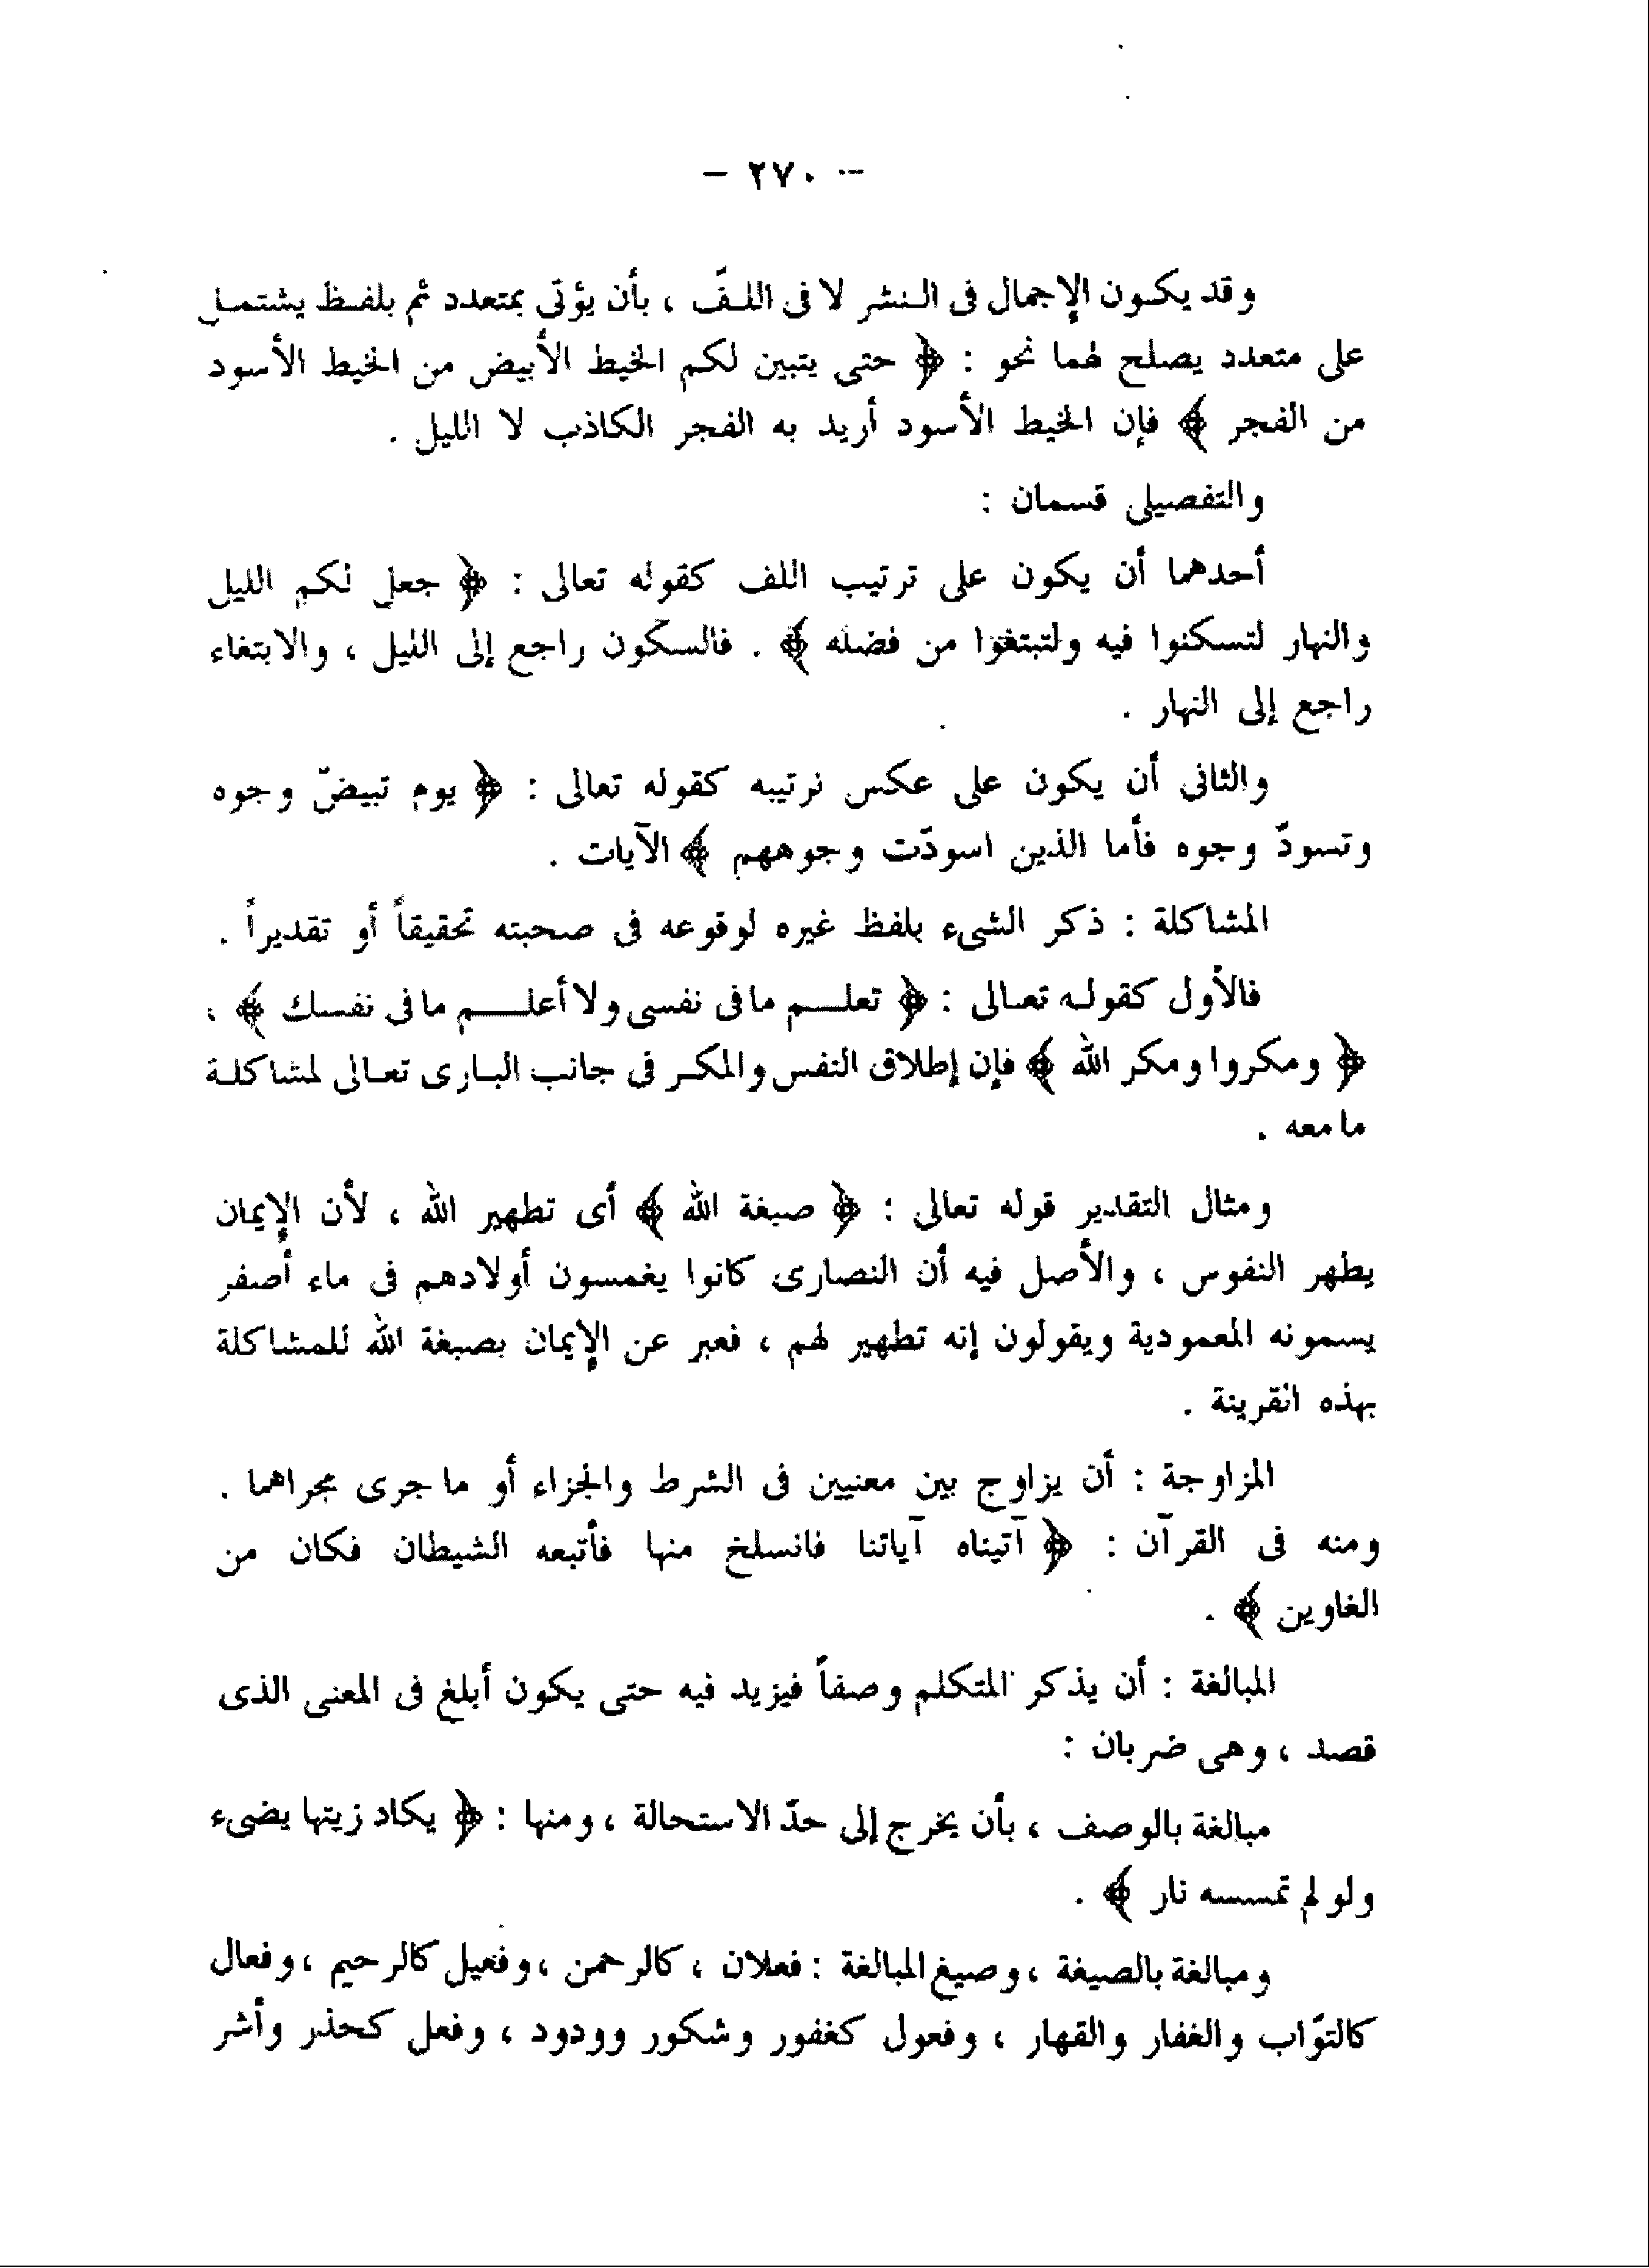 – ٢٧٠ –
وقد يكون الإجمال فى النشر لا فى اللفّ ، بأن يؤتى بمتعدد ثم بلفظ يشتمل
على متعدد يصلح لهما نحو : ﴿ حتى يتبين لكم الخيط الأبيض من الخيط الأسود
من الفجر ﴾ فإن الخيط الأسود أريد به الفجر الكاذب لا الليل .
والتفصيلى قسمان :
أحدهما أن يكون على ترتيب اللف كقوله تعالى : ﴿ جعل لكم الليل
والنهار لتسكنوا فيه ولتبتغوا من فضله ﴾ . فالسكون راجع إلى الليل ، والابتغاء
راجع إلى النهار .
والثانى أن يكون على عكس ترتيبه كقوله تعالى : ﴿ يوم تبيضّ وجوه
وتسودّ وجوه فأما الذين اسودّت وجوههم ﴾ الآيات .
المشاكلة : ذكر الشىء بلفظ غيره لوقوعه فى صحبته تحقيقاً أو تقديراً .
فالأول كقوله تعالى : ﴿ تعلم ما فى نفسى ولا أعلم ما فى نفسك ﴾ ،
﴿ ومكروا ومكر الله ﴾ فإن إطلاق النفس والمكر فى جانب البارى تعالى لمشاكلة
ما معه .
ومثال التقدير قوله تعالى : ﴿ صبغة الله ﴾ أى تطهير الله ، لأن الإيمان
يطهر النفوس ، والأصل فيه أن النصارى كانوا يغمسون أولادهم فى ماء أصفر
يسمونه المعمودية ويقولون إنه تطهير لهم ، فعبر عن الإيمان بصبغة الله للمشاكلة
بهذه القرينة .
المزاوجة : أن يزاوج بين معنيين فى الشرط والجزاء أو ما جرى مجراهما .
ومنه فى القرآن : ﴿ آتيناه آياتنا فانسلخ منها فأتبعه الشيطان فكان من
الغاوين ﴾ .
المبالغة : أن يذكر المتكلم وصفاً فيزيد فيه حتى يكون أبلغ فى المعنى الذى
قصد ، وهى ضربان :
مبالغة بالوصف ، بأن يخرج إلى حدّ الاستحالة ، ومنها : ﴿ يكاد زيتها يضىء
ولو لم تمسسه نار ﴾ .
ومبالغة بالصيغة ، وصيغ المبالغة : فعلان ، كالرحمن ، وفعيل كالرحيم ، وفعال
كالتوّاب والغفار والقهار ، وفعول كغفور وشكور وودود ، وفعل كحذر وأشر